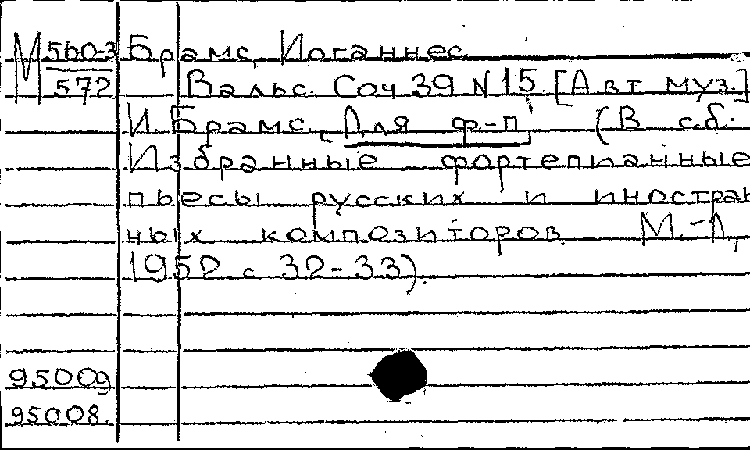 М 560-3 Брамс, Иоганнес
572 Вальс. Соч 39 N 15 [Авт муз.]
И. Брамс. [Для ф-п] (В сб.:
Избранные фортепианные
пьесы русских и иностран
ных композиторов. М.-Л,
1952 с 32-33).
95009
95008.